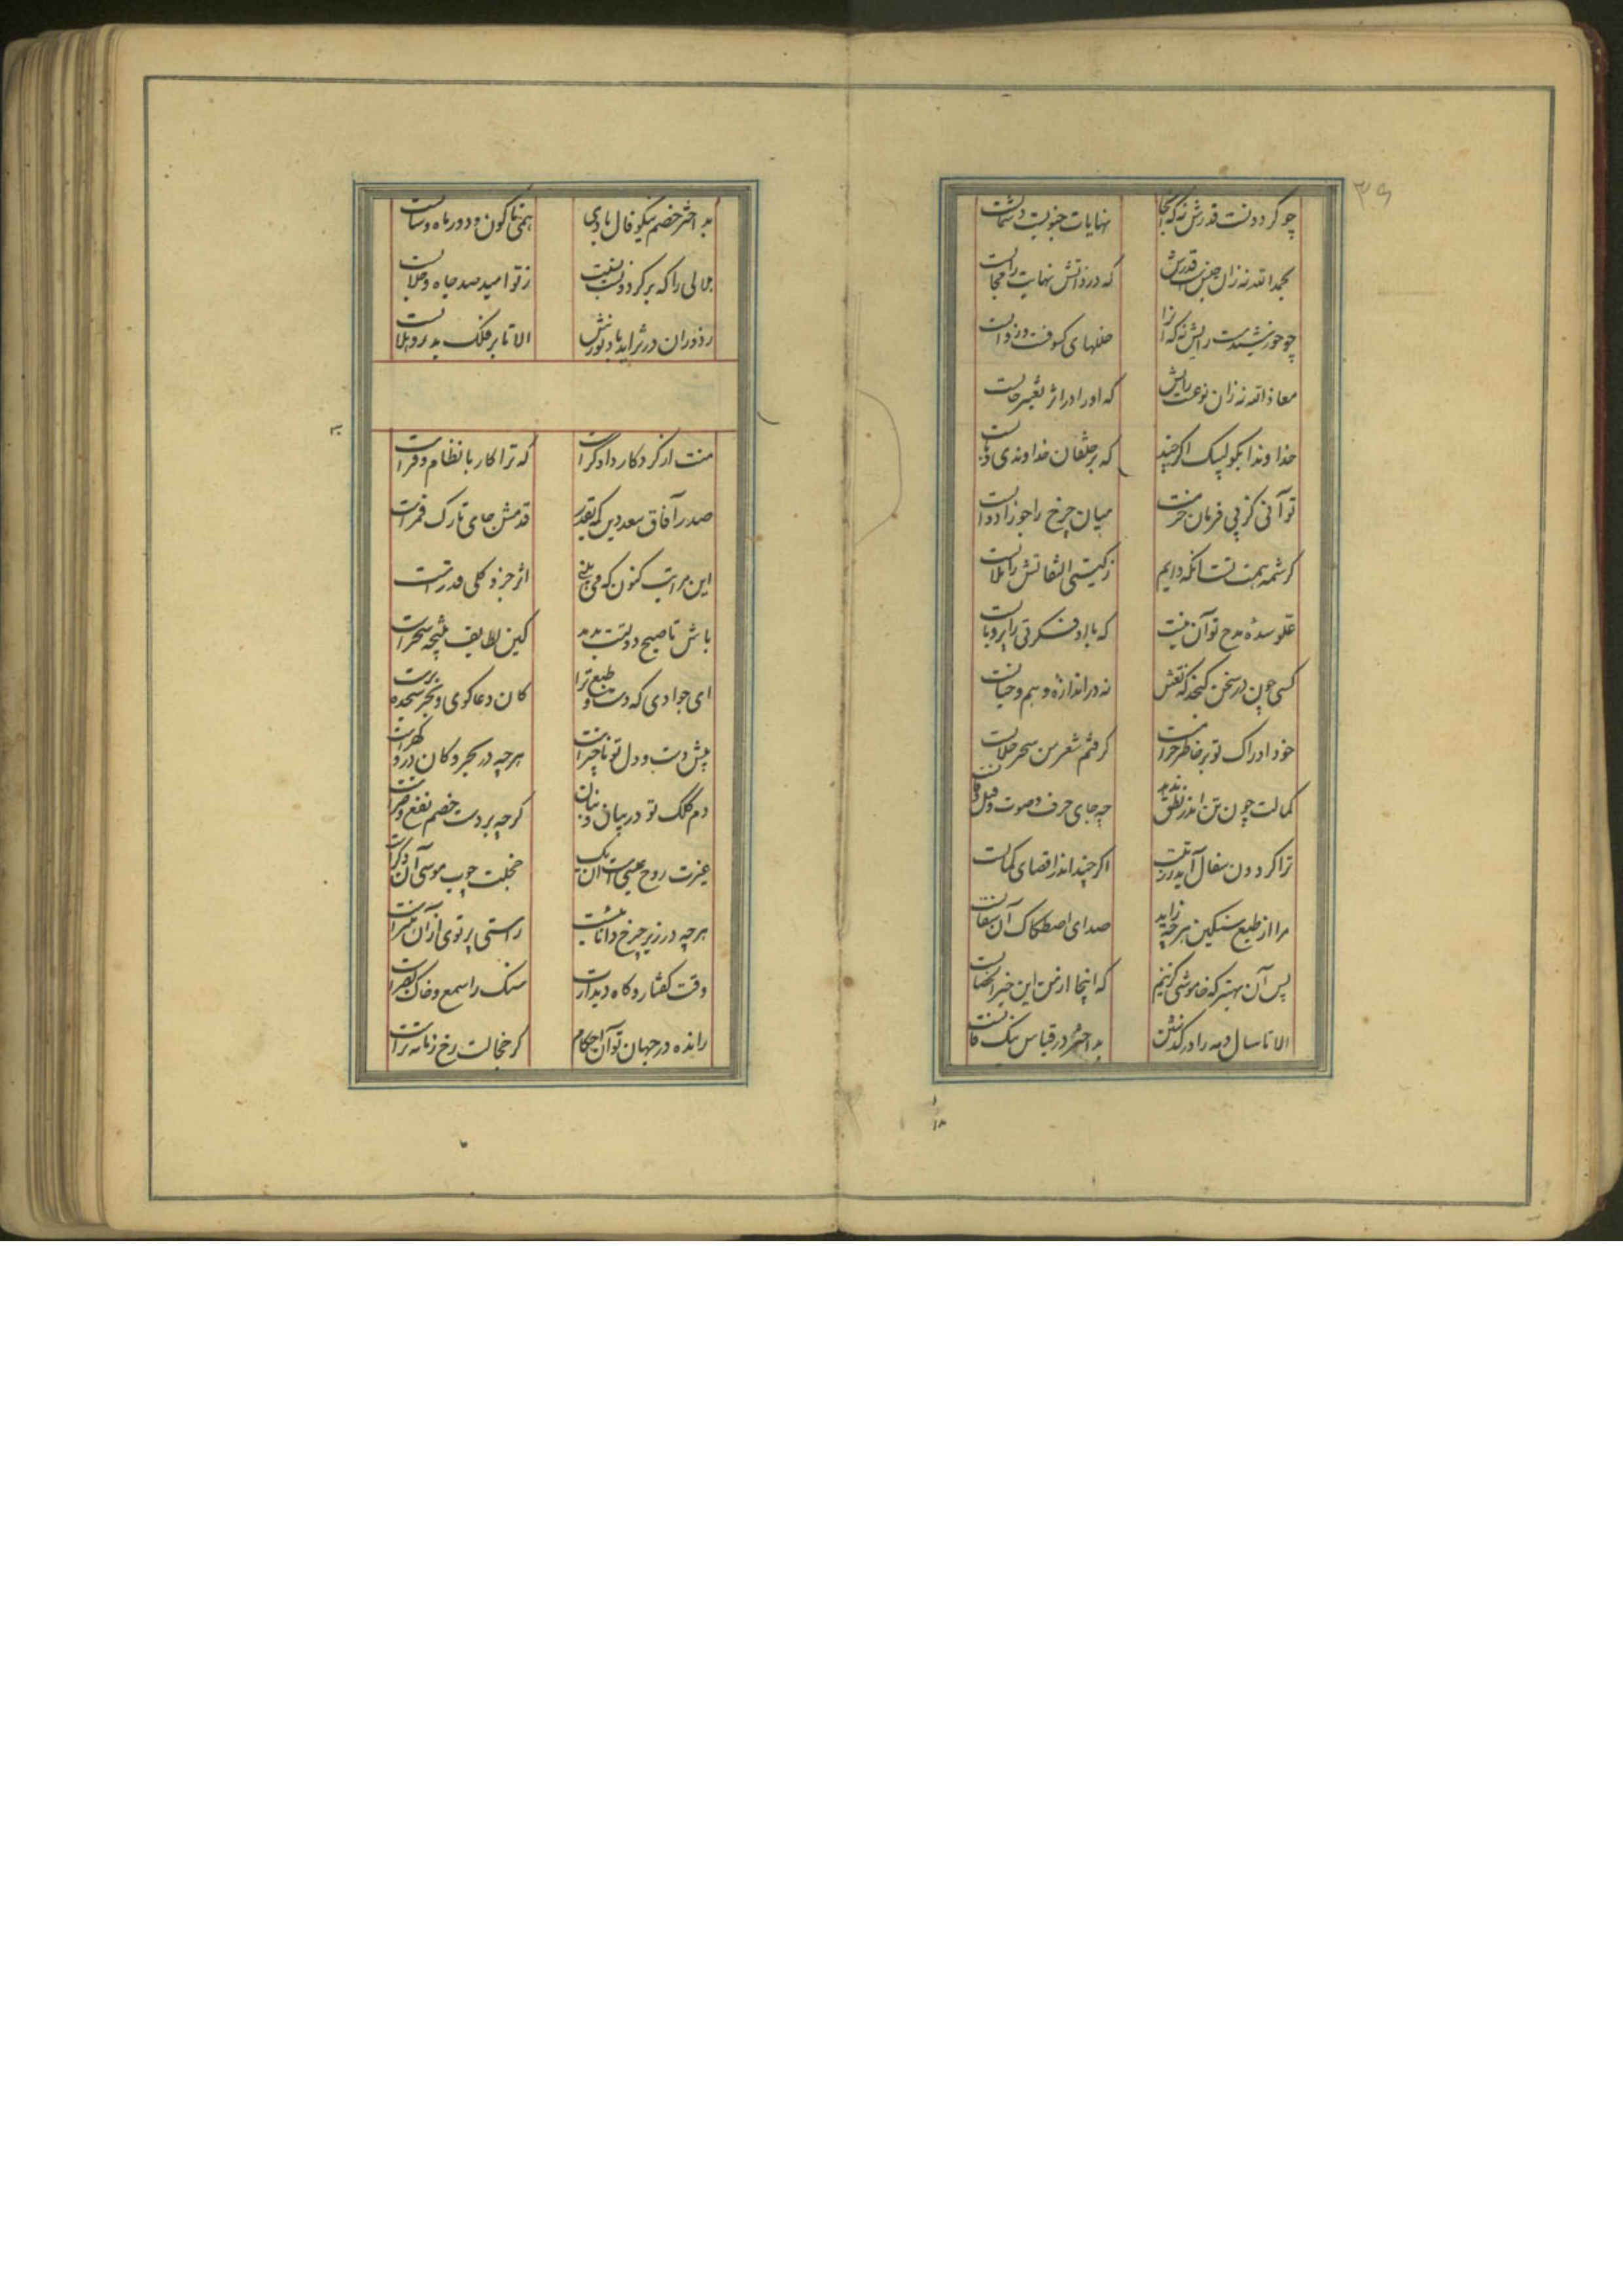 ۳۶
چو گردونست قدرش نه که آنجا نهایات جنوبست و شمالست
بحمدالله نه زان جنس است قدرش که در ذاتش نهایت را مجالست
چو خورشیدست رایش نه که آنرا خللهای کسوفست و زوالست
معاذالله نه زان نوعست رایش که او را در اثر تغییر حالست
خداوندا بگو لبیک اگر چند که بر خلقان خداوندی وبالست
تو آنی کز پی فرمان جزمت میان چرخ را جوزا دوالست
کرشمه همت تست آنکه دایم ز گیتی التفاتش را ملالست
علو سده مدح تو آن نیست که با او فکرتی را پر و بالست
کسی چون در سخن گنجد که نعتش نه در اندازه وهم و خیالست
خود ادراک تو بر خاطر حرامست گرفتم شعر من سحر حلالست
کمالت چون تن اندر نطق ندهد چه جای حرف و صوت و قیل و قالست
ترا گردون سفال آید ز رتبت اگر چند اندر اقصای کمالست
مرا از طبع سنگین هر چه زاید صدای اصطکاک آن سفالست
پس آن بهتر که خاموشی گزینم که اینجا از من این خیر الخصالست
الا تا سال و مه را در گذشتن بد اختر در قیاس نیک فالست
بد اختر خصم نیکو فال بادی همی تا کون و دور ماه و سالست
جلالی را که بر گردون بنسبت ز تو امید صد جاه و جلالست
ز دوران در تزاید باد نورش الا تا بر فلک بدر و هلالست
منت از کردگار دادگرست که ترا کار با نظام و فرست
صدر آفاق سعد دین که بقدر قدمش جای تارک قمرست
این مراتب کنون که می بینی اثر جزو کلی قدرست
باش تا صبح دولتت بدمد کین لطایف نتیجه سحرست
ای جوادی که دست و طبع ترا کان دعاگوی و بحر سجده برست
پیش دست و دل تو ناچیزست هر چه در بحر و کان در و گهرست
دم کلک تو در بیان و بنان گرچه بر دست خصم نفع و ضرست
غیرت روح عیسی است آن یک خجلت چوب موسی آن دگرست
هر چه در زیر چرخ داناییست راستی پرتوی از آن هنرست
وقت گفتار و گاه دیدارت سنگ را سمع و خاک را بصرست
رانده در جهان تو آن احکام کز خجالت رخ زمانه ترست